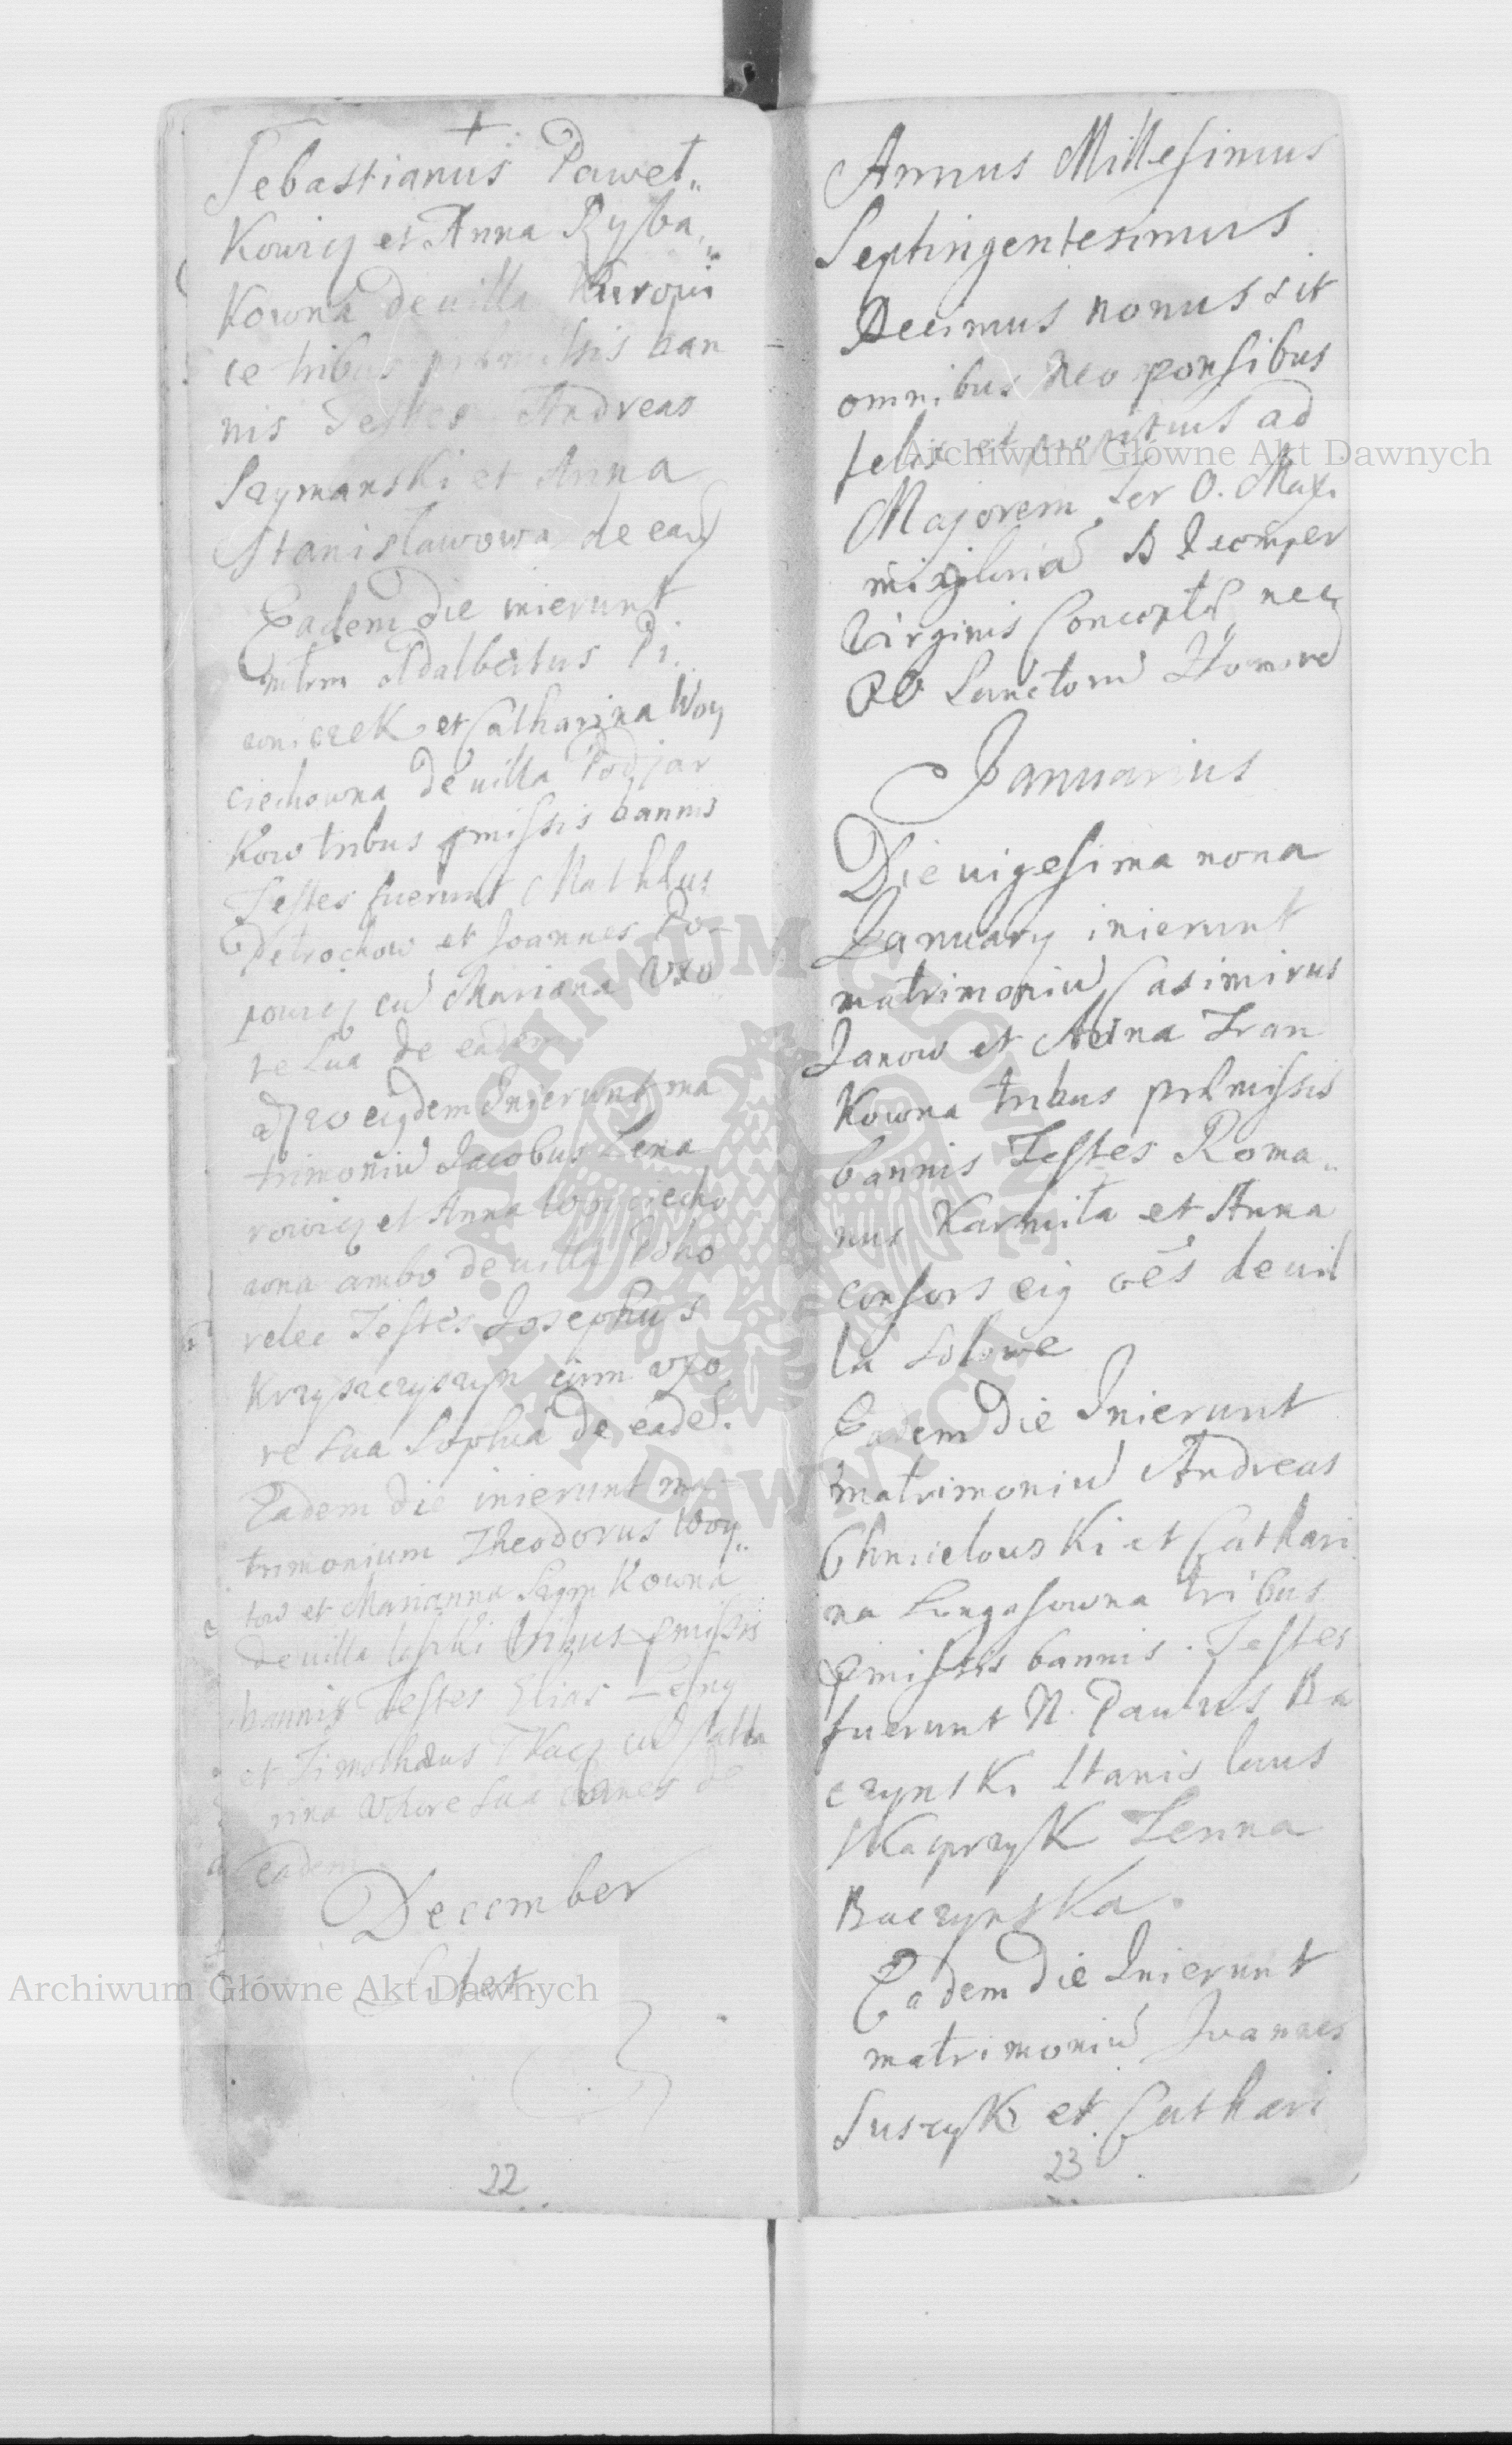 Sebastianus Paweł„
Kowicz et Anna Ryba„
Kowna de villa Kuropi
ce tribus præmissis ban
nis Testes Andreas
Szymanski et Anna
Stanisławowa de ead
Eadem die inierunt
mtrm Adalbertus Pi
wniczek et Catharina Woy
ciechowna de villa Podjar
Kow tribus pmissis bannis
Testes fuerunt Mathæus
Petrochow et Joannes Po-
powicz cu Mariana Uxo
re sua de eadem
20 eigdem Inierunt ma
trimoniu Jacobus Lena
rowicz et Anna Woyciecho
wna ambo de villa Poho
relec Testes Josephus
Krzyszczyszyn cum uxo
re sua Sophia de eade.
Eadem die inierunt ma-
trimonium Theodorus Woy„
tow et Marianna Szymkowna
de villa laszki tribus pmissis
bannis Testes Elias Lesny
et Timothæus Tkacz cu Catha
rina Uxore sua omnes de
eadem
December
22
Annus Millesimus
Septingentesimus
Decimus nonus sit
omnibus Neo sponsibus
felix et ad
Majorem Ter O. Max.
B Semper
Virginis Concepta nec
Sanctoru Honore
Januarius
Die vigesima nona
January inierunt
matrimoniu Casimirus
Janow et Anna Iwan
Kowna tribus præmissis
bannis Testes Roma„
nus Karmita et Anna
consors eig oes de vil
la Solowe
Eadem die Inierunt
matrimoniu Andreas
Chmielouski et Cathari
na Lungasowna tribus
pmissis bannis. Testes
fuerunt N. Paulus Ba
czynski Stanislaus
Kacprzyk Ienna
Baczynska.
Eadem die Inierunt
matrimoniu Joannes
Suszyk et Cathari
23
Archiwum Główne Akt Dawnych
Archiwum Główne Akt Dawnych
ARCHIWUM GŁÓWNE
AKT DAWNYCH